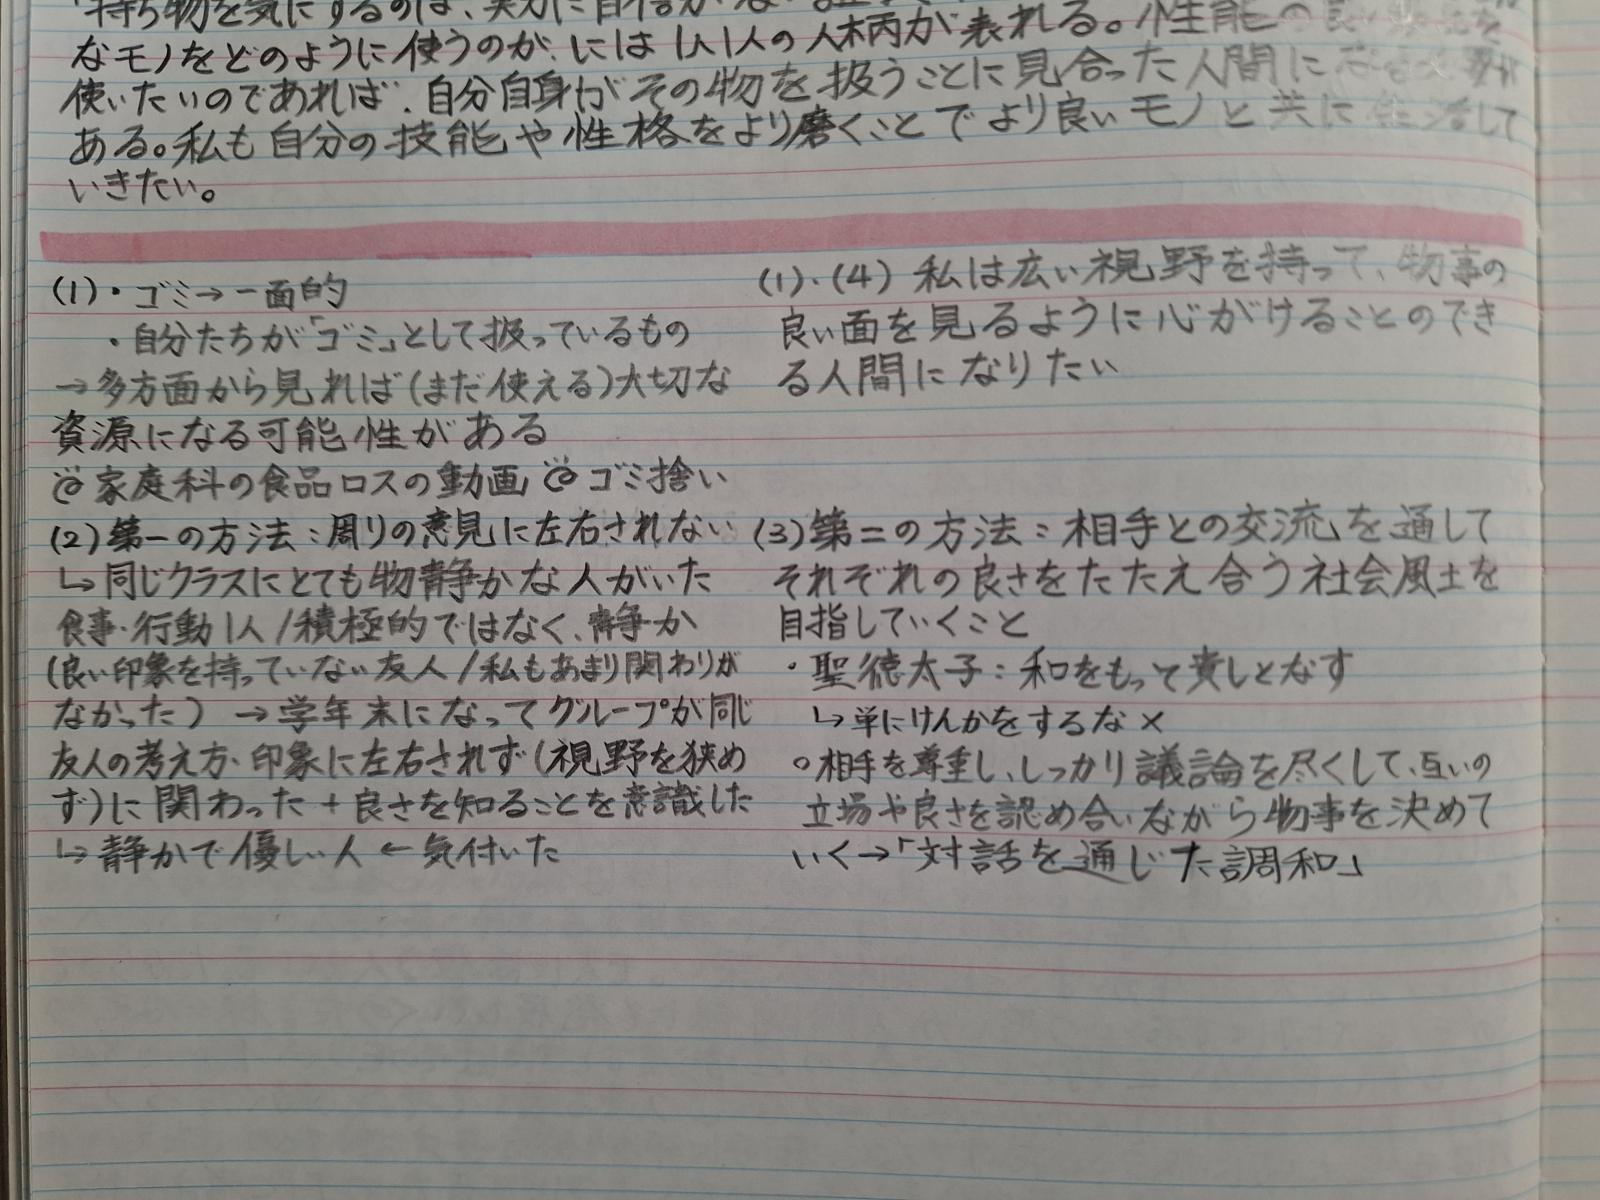 持ち物を気にするのは、実力に自信がない
なモノをどのように使うのか、には1人1人の人柄が表れる。性能の良い
使いたいのであれば、自分自身がその物を扱うことに見合った人間に
ある。私も自分の技能や性格をより磨くことでより良いモノと共に生活して
いきたい。
(1)・ゴミ→一面的
・自分たちが「ゴミ」として扱っているもの
→多方面から見れば(まだ使える)大切な
資源になる可能性がある
家庭科の食品ロスの動画 ゴミ拾い
(2)第一の方法:周りの意見に左右されない
↳同じクラスにとても物静かな人がいた
食事・行動1人/積極的ではなく、静か
(良い印象を持っていない友人/私もあまり関わりが
なかった) →学年末になってグループが同じ
友人の考え方・印象に左右されず(視野を狭め
ず)に関わった+良さを知ることを意識した
↳静かで優しい人←気付いた
(1)・(4) 私は広い視野を持って、物事の
良い面を見るように心がけることのでき
る人間になりたい
(3)第二の方法:相手との交流を通して
それぞれの良さをたたえ合う社会風土を
目指していくこと
・聖徳太子:和をもって貴しとなす
↳単にけんかをするな×
○相手を尊重し、しっかり議論を尽くして、互いの
立場や良さを認め合いながら物事を決めて
いく→「対話を通じた調和」